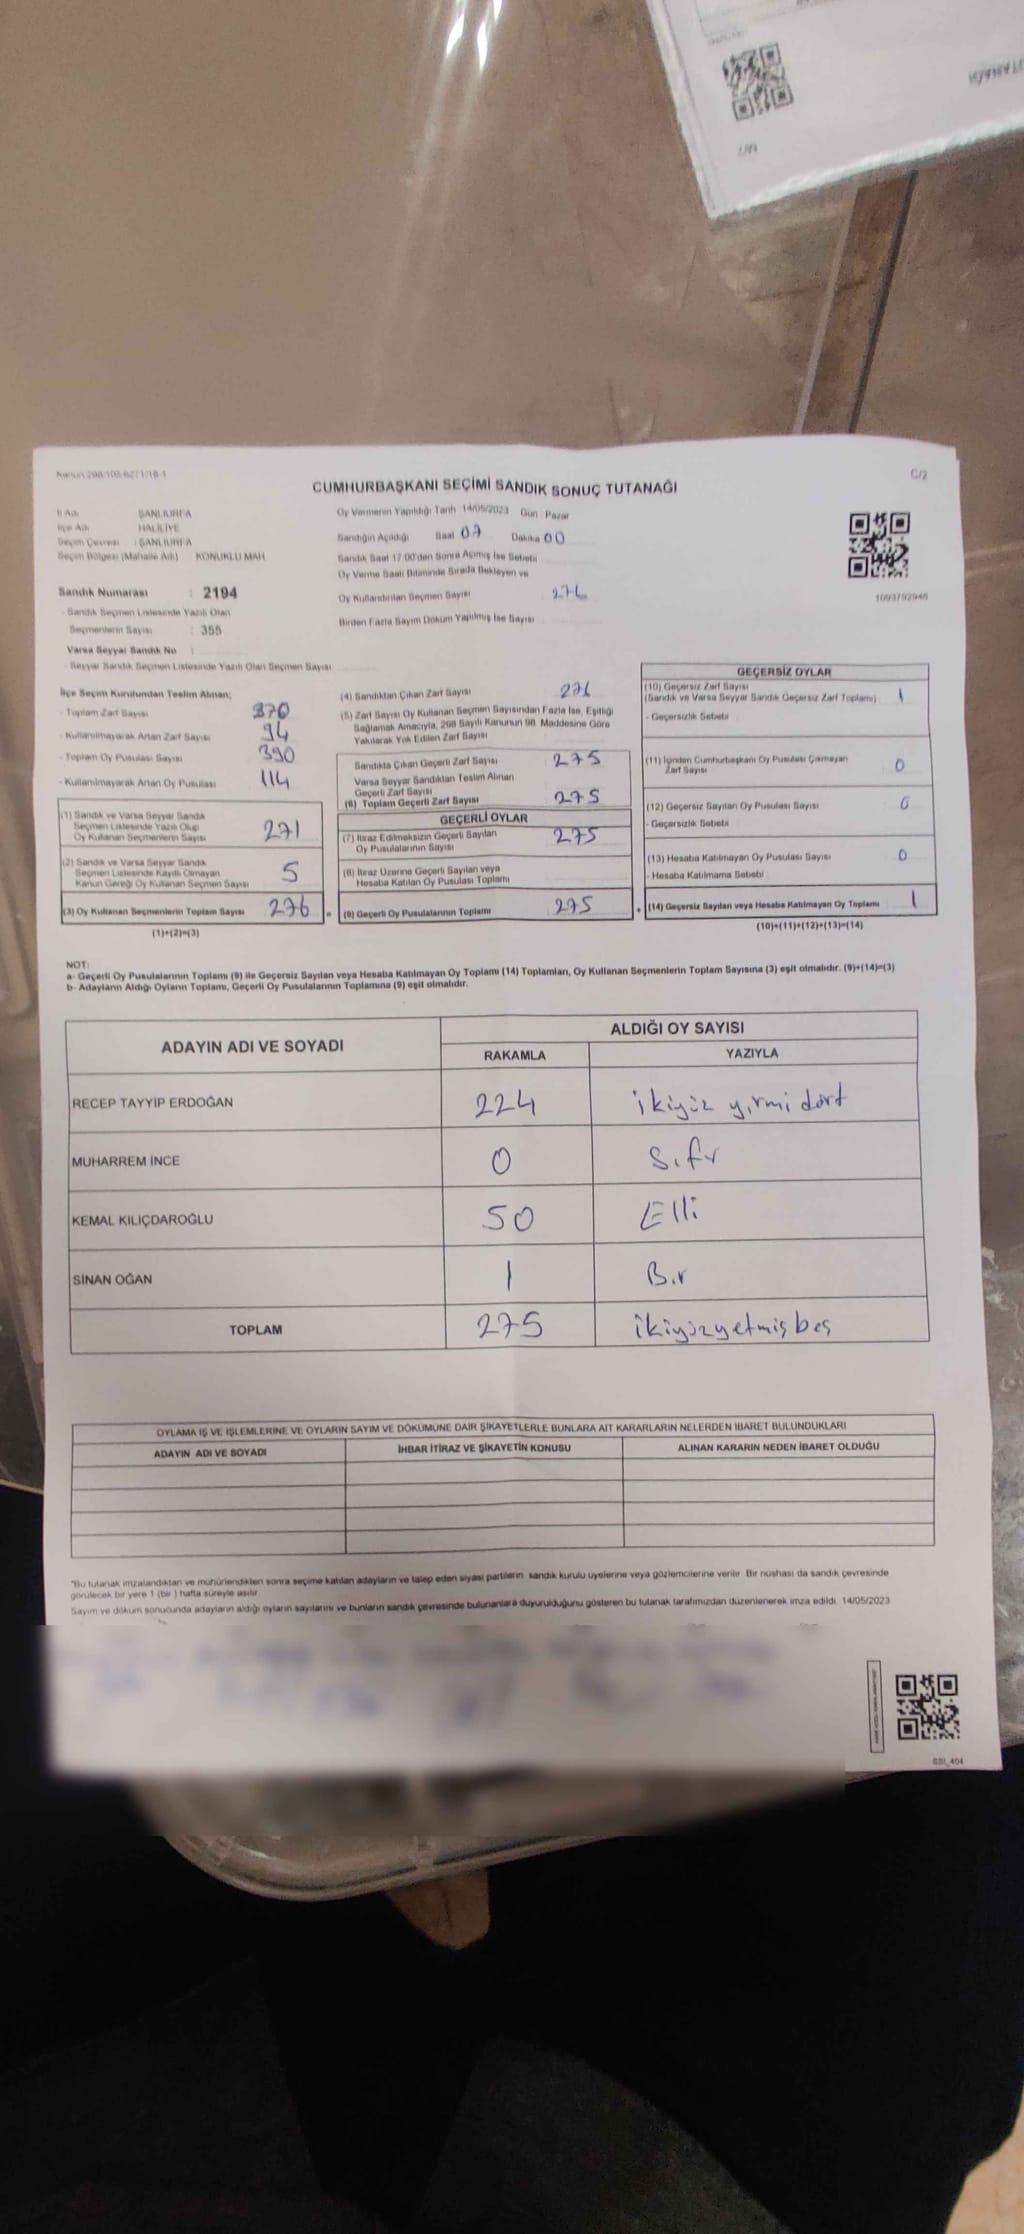 C/2
CUMHURBAŞKANI SEÇİMİ SANDIK SONUÇ TUTANAĞI
İl Adı : ŞANLIURFA
İlçe Adı : HALİLİYE
Seçim Çevresi : ŞANLIURFA
Seçim Bölgesi (Mahalle Adı) : KONUKLU MAH.
Oy Vermenin Yapıldığı Tarih 14/05/2023 Gün : Pazar
Sandığın Açıldığı Saat 07 Dakika 00
Sandık Saat 17.00'den Sonra Açılmış İse Sebebi
Oy Verme Saati Bitiminde Sırada Bekleyen ve
Oy Kullandırılan Seçmen Sayısı 276
Birden Fazla Sayım Döküm Yapılmış İse Sayısı
1093792948
Sandık Numarası : 2194
- Sandık Seçmen Listesinde Yazılı Olan
Seçmenlerin Sayısı : 355
Varsa Seyyar Sandık No :
- Seyyar Sandık Seçmen Listesinde Yazılı Olan Seçmen Sayısı
İlçe Seçim Kurulundan Teslim Alınan;
- Toplam Zarf Sayısı 370
- Kullanılmayarak Artan Zarf Sayısı 94
- Toplam Oy Pusulası Sayısı 390
- Kullanılmayarak Artan Oy Pusulası 114
(1) Sandık ve Varsa Seyyar Sandık
Seçmen Listesinde Yazılı Olup
Oy Kullanan Seçmenlerin Sayısı 271
(2) Sandık ve Varsa Seyyar Sandık
Seçmen Listesinde Kayıtlı Olmayan
Kanun Gereği Oy Kullanan Seçmen Sayısı 5
(3) Oy Kullanan Seçmenlerin Toplam Sayısı 276
(1)+(2)=(3)
(4) Sandıktan Çıkan Zarf Sayısı 276
(5) Zarf Sayısı Oy Kullanan Seçmen Sayısından Fazla İse, Eşitliği
Sağlamak Amacıyla, 298 Sayılı Kanunun 98. Maddesine Göre
Yakılarak Yok Edilen Zarf Sayısı
Sandıkta Çıkan Geçerli Zarf Sayısı 275
Varsa Seyyar Sandıktan Teslim Alınan
Geçerli Zarf Sayısı
(6) Toplam Geçerli Zarf Sayısı 275
GEÇERLİ OYLAR
(7) İtiraz Edilmeksizin Geçerli Sayılan
Oy Pusulalarının Sayısı 275
(8) İtiraz Üzerine Geçerli Sayılan veya
Hesaba Katılan Oy Pusulası Toplamı
= (9) Geçerli Oy Pusulalarının Toplamı 275
GEÇERSİZ OYLAR
(10) Geçersiz Zarf Sayısı
(Sandık ve Varsa Seyyar Sandık Geçersiz Zarf Toplamı) 1
- Geçersizlik Sebebi
(11) İçinden Cumhurbaşkanı Oy Pusulası Çıkmayan
Zarf Sayısı 0
(12) Geçersiz Sayılan Oy Pusulası Sayısı 0
- Geçersizlik Sebebi
(13) Hesaba Katılmayan Oy Pusulası Sayısı 0
- Hesaba Katılmama Sebebi
+ (14) Geçersiz Sayılan veya Hesaba Katılmayan Oy Toplamı 1
(10)+(11)+(12)+(13)=(14)
NOT:
a- Geçerli Oy Pusulalarının Toplamı (9) ile Geçersiz Sayılan veya Hesaba Katılmayan Oy Toplamı (14) Toplamları, Oy Kullanan Seçmenlerin Toplam Sayısına (3) eşit olmalıdır. (9)+(14)=(3)
b- Adayların Aldığı Oyların Toplamı, Geçerli Oy Pusulalarının Toplamına (9) eşit olmalıdır.
ADAYIN ADI VE SOYADI ALDIĞI OY SAYISI
RAKAMLA YAZIYLA
RECEP TAYYİP ERDOĞAN 224 ikiyüz yirmi dört
MUHARREM İNCE 0 Sıfır
KEMAL KILIÇDAROĞLU 50 Elli
SİNAN OĞAN 1 Bir
TOPLAM 275 ikiyüzyetmişbeş
OYLAMA İŞ VE İŞLEMLERİNE VE OYLARIN SAYIM VE DÖKÜMÜNE DAİR ŞİKAYETLERLE BUNLARA AİT KARARLARIN NELERDEN İBARET BULUNDUKLARI
ADAYIN ADI VE SOYADI İHBAR İTİRAZ VE ŞİKAYETİN KONUSU ALINAN KARARIN NEDEN İBARET OLDUĞU
*Bu tutanak imzalandıktan ve mühürlendikten sonra seçime katılan adayların ve talep eden siyasi partilerin sandık kurulu üyelerine veya gözlemcilerine verilir. Bir nüshası da sandık çevresinde
görülecek bir yere 1 (bir) hafta süreyle asılır.
Sayım ve döküm sonucunda adayların aldığı oyların sayılarını ve bunların sandık çevresinde bulunanlara duyurulduğunu gösteren bu tutanak tarafımızdan düzenlenerek imza edildi. 14/05/2023